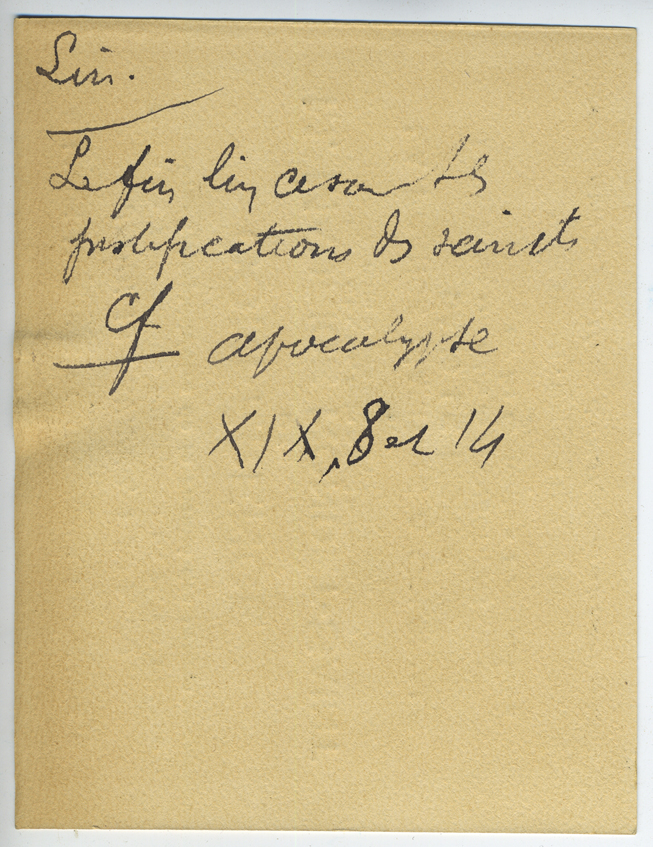 Lin.
Le fin lin, ce sont les
justifications des saints
Cf apocalypse
XIX, 8 et 14